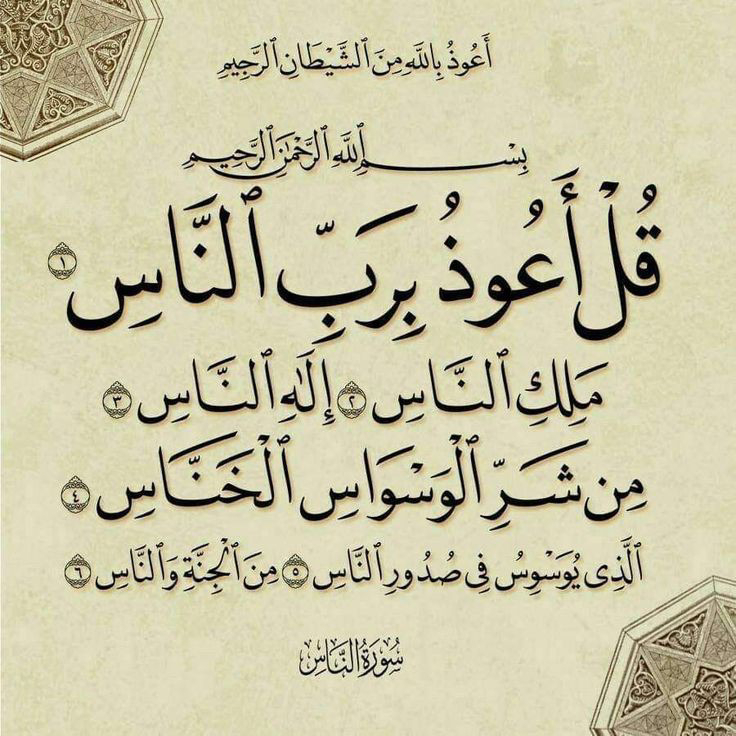 أَعُوذُ بِاللَّهِ مِنَ الشَّيْطَانِ الرَّجِيمِ
بِسْمِ اللَّهِ الرَّحْمَٰنِ الرَّحِيمِ
قُلْ أَعُوذُ بِرَبِّ ٱلنَّاسِ ١
مَلِكِ ٱلنَّاسِ ٢ إِلَٰهِ ٱلنَّاسِ ٣
مِن شَرِّ ٱلْوَسْوَاسِ ٱلْخَنَّاسِ ٤
ٱلَّذِى يُوَسْوِسُ فِى صُدُورِ ٱلنَّاسِ ٥ مِنَ ٱلْجِنَّةِ وَٱلنَّاسِ ٦
سُورَةُ النَّاسِ